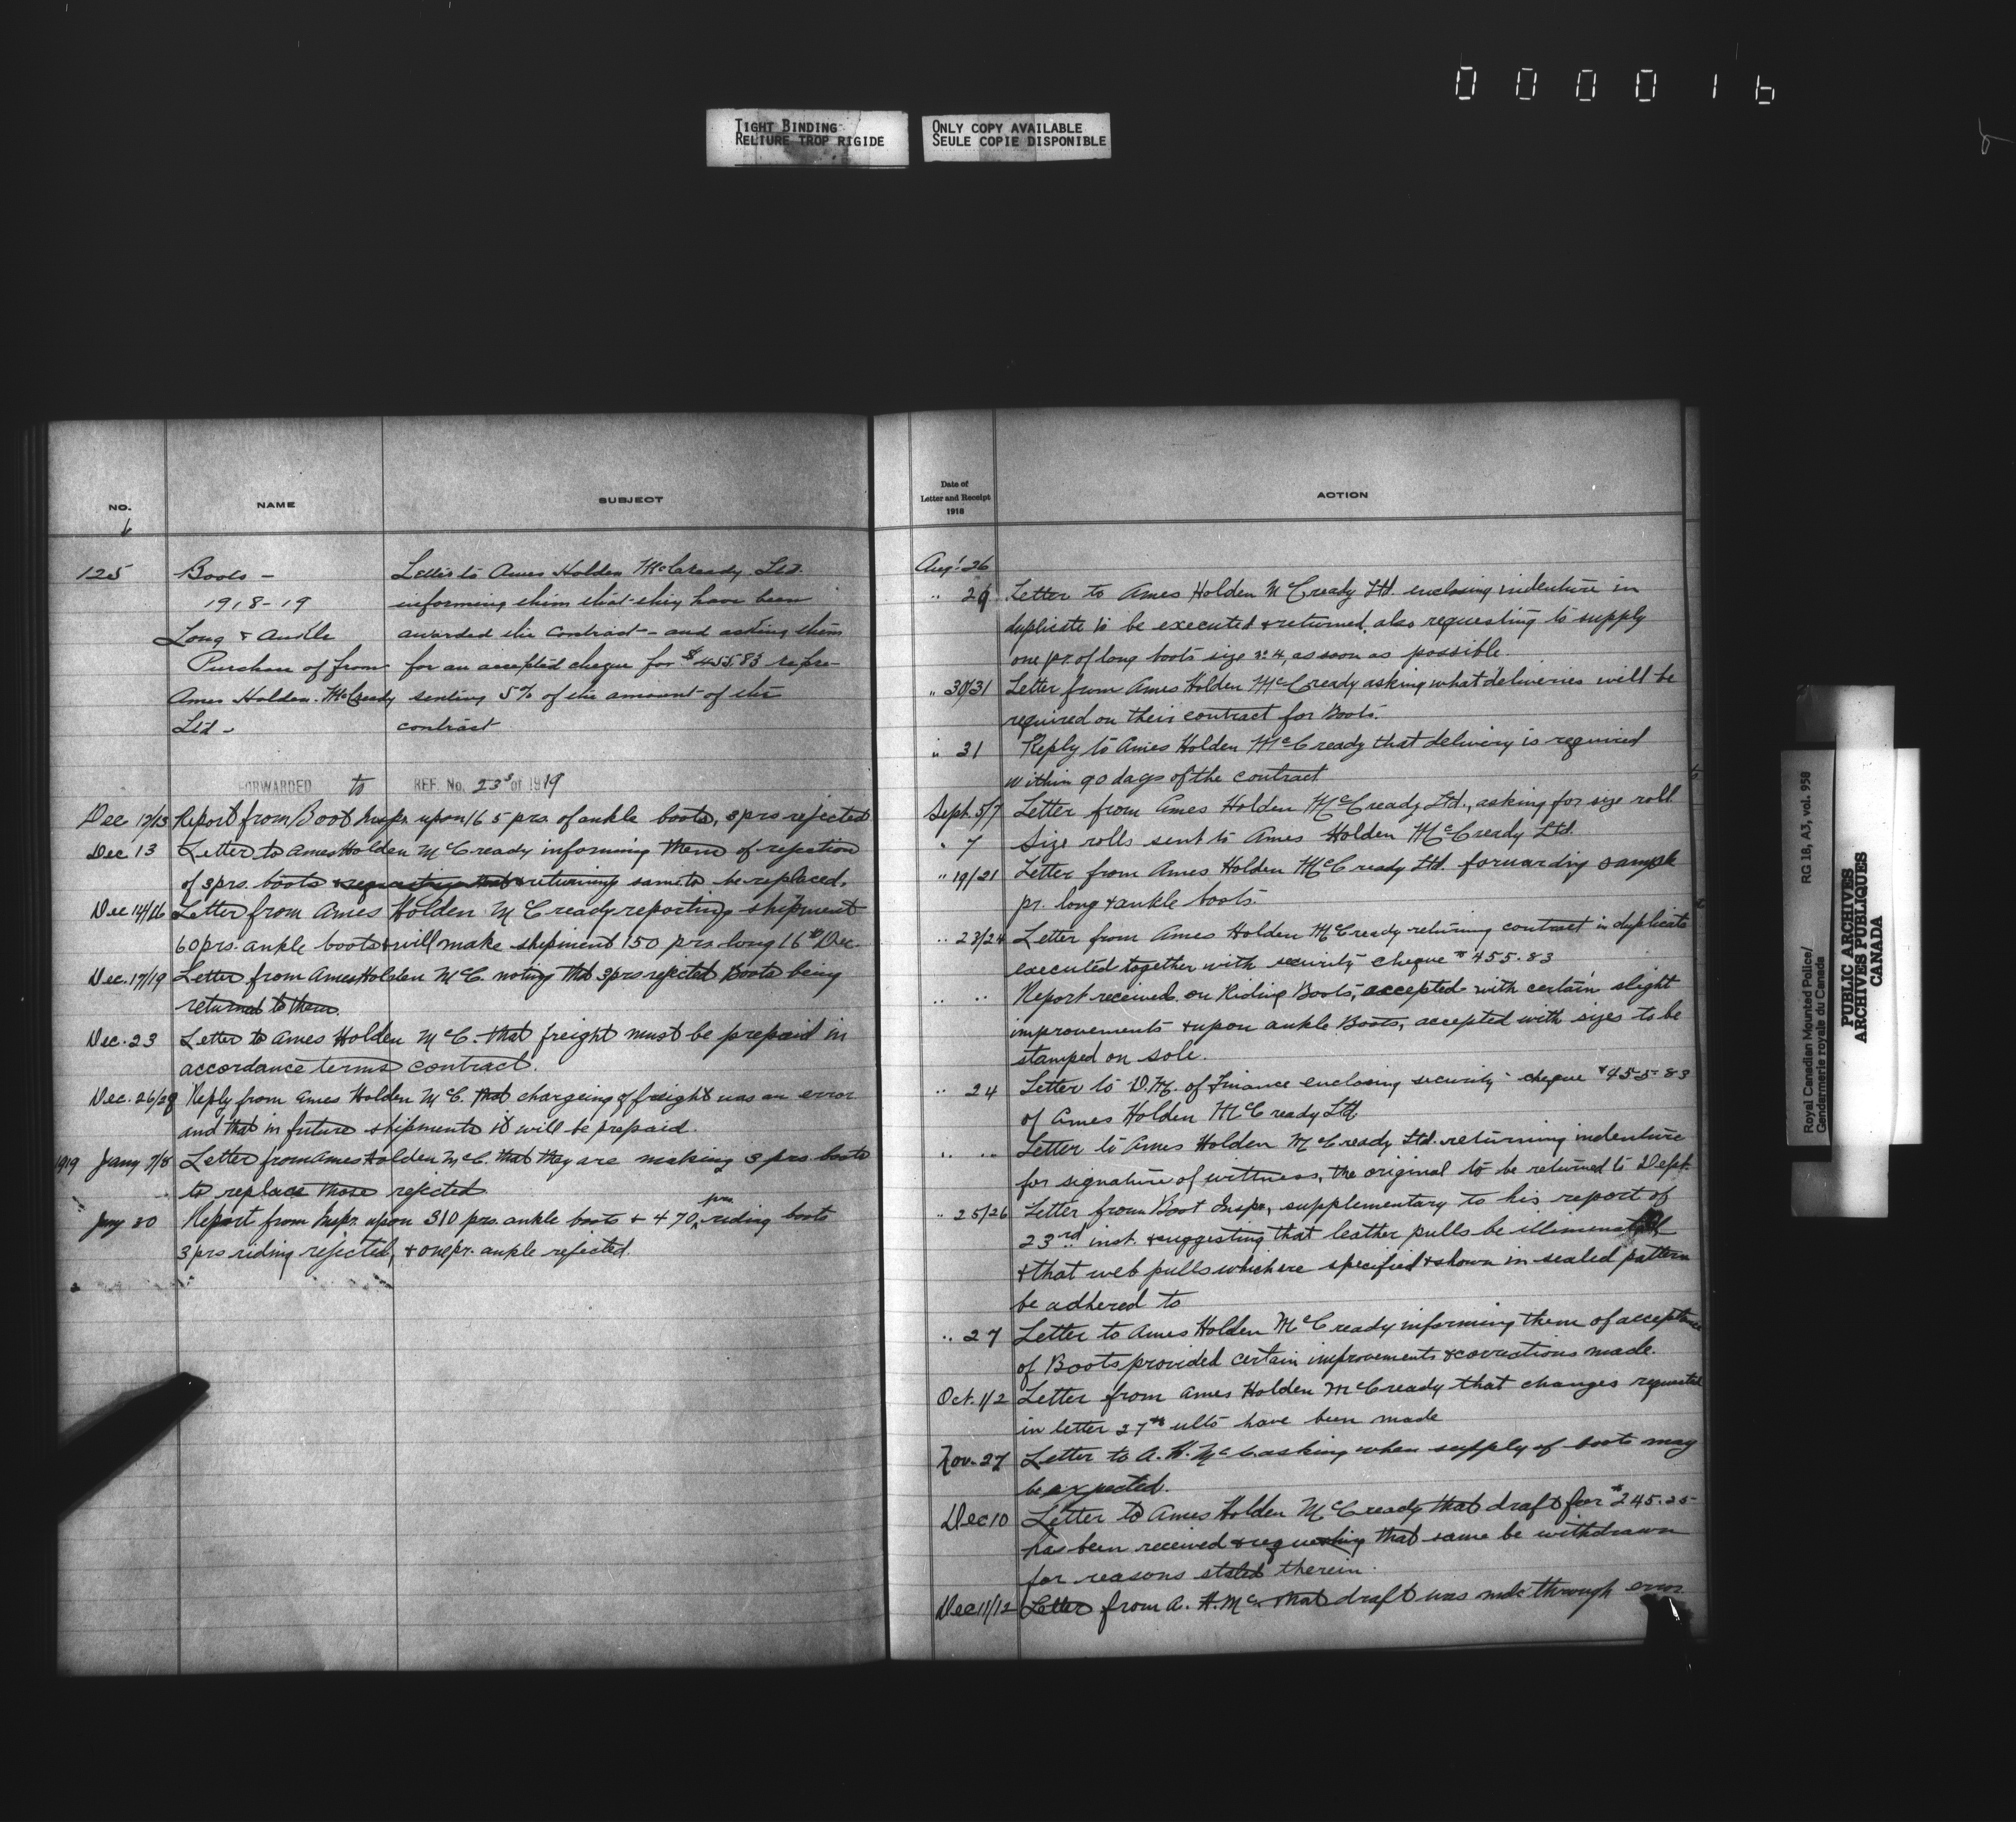 000016
TIGHT BINDING
RELIURE TROP RIGIDE
ONLY COPY AVAILABLE
SEULE COPIE DISPONIBLE
NO.
NAME
SUBJECT
125
Boots -
1918-19
Long & Ankle
Purchase of from
Ames Holden. McCready
Ltd -
Letter to Ames Holden McCready Ltd.
informing them that they have been
awarded the contract - and asking them
for an accepted cheque for $455.83 repre-
senting 5% of the amount of the
contract
FORWARDED to REF. No. 23 of 1919
Dec 12/13 Report from Boot Inspr. upon 165 prs. of ankle boots, 3 prs rejected
Dec 13 Letter to Ames Holden McCready informing them of rejection
of 3 prs. boots & requesting that & returning same to be replaced.
Dec 14/16 Letter from Ames Holden McCready reporting shipment
60 prs. ankle boots & will make shipment 150 prs. long 16th Dec.
Dec. 17/19 Letter from Ames Holden McC. noting that 3 prs rejected Boots being
returned to them.
Dec. 23 Letter to Ames Holden McC. that freight must be prepaid in
accordance terms contract.
Dec. 26/28 Reply from Ames Holden McC. that chargeing of freight was an error
and that in future shipments it will be prepaid.
1919 Jany 7/8 Letter from Ames Holden McC. that they are making 3 prs boots
to replace those rejected
Jany 20 Report from Inspr. upon 310 prs. ankle boots & 470 prs. riding boots
3 prs riding rejected, & one pr. ankle rejected.
Date of
Letter and Receipt
1918
ACTION
Aug. 26
" 29 Letter to Ames Holden McCready Ltd. enclosing indenture in
duplicate to be executed & returned, also requesting to supply
one pr. of long boots size no 4, as soon as possible
" 30/31 Letter from Ames Holden McCready asking what deliveries will be
required on their contract for Boots.
" 31 Reply to Ames Holden McCready that delivery is required
within 90 days of the contract
Sept. 5/7 Letter from Ames Holden McCready Ltd., asking for size roll
" 7 Size rolls sent to Ames Holden McCready Ltd.
" 19/21 Letter from Ames Holden McCready Ltd. forwarding sample
pr. long & ankle boots.
" 23/24 Letter from Ames Holden McCready returning contract in duplicate
executed together with security cheque $455.83
" " Report received on Riding Boots, accepted with certain slight
improvements & upon ankle Boots, accepted with sizes to be
stamped on sole.
" 24 Letter to D.M. of Finance enclosing security cheque $455.83
of Ames Holden McCready Ltd.
" " Letter to Ames Holden McCready Ltd. returning indenture
for signature of wittness, the original to be returned to Dept.
" 25/26 Letter from Boot Inspr, supplementary to his report of
23rd inst. & suggesting that leather pulls be
& that web pulls which are specified & shown in sealed pattern
be adhered to
" 27 Letter to Ames Holden McCready informing them of acceptance
of Boots provided certain improvements & corrections made.
Oct. 1/2 Letter from Ames Holden McCready that changes requested
in letter 27th ulto have been made
Nov. 27 Letter to A. H. McC asking when supply of boots may
be expected.
Dec 10 Letter to Ames Holden McCready that draft for $245.25
has been received & requesting that same be withdrawn
for reasons stated therein.
Dec 11/12 Letter from A. H. McC. that draft was made through error
Royal Canadian Mounted Police/
Gendarmerie royale du Canada
RG 18, A3, vol. 958
PUBLIC ARCHIVES
ARCHIVES PUBLIQUES
CANADA